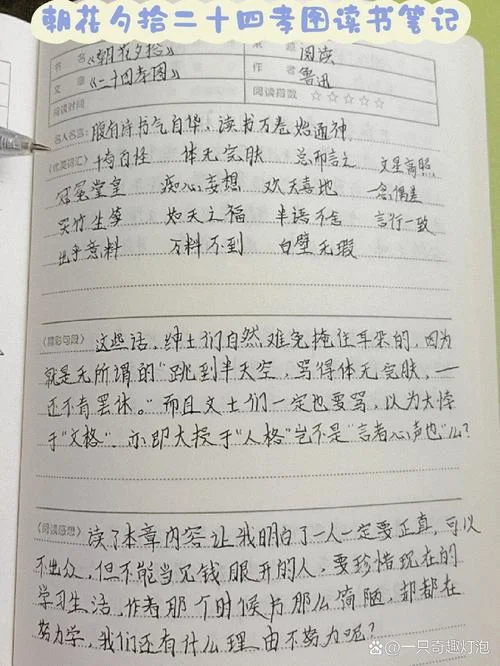 朝花夕拾二十四孝图读书笔记
书 名 《朝花夕拾》 来 题 阅读
文 章 《二十四孝图》 作 者 鲁迅
阅读时间 阅读指数 ☆☆☆☆☆
名人名言: 腹有诗书气自华，读书万卷始通神
《优美词汇》 十奇百怪 体无完肤 总而言之 文星高照
冠冕堂皇 痴心妄想 欢天喜地
哭竹生笋 如天之福 言行一致
出乎意料 万料不到 白璧无瑕
《精彩句段》 这些话，绅士们自然难免掩住耳朵的，因为
就是无所谓的“跳到半天空，骂得体无完肤，—
还不肯罢休。”而且文士们一定也要骂，以为大悖
于“文格”，亦即大授于“人格”岂不是“言者心声也”么?
《阅读感想》 读了本章内容让我明白了一人一定要正直，可以
不出众，但不能当见钱眼开的人，要珍惜现在的
学习生活，作者那个时候书那么简陋，却都在
努力学，我们还有什么理由不努力呢?
@一只奇趣灯泡